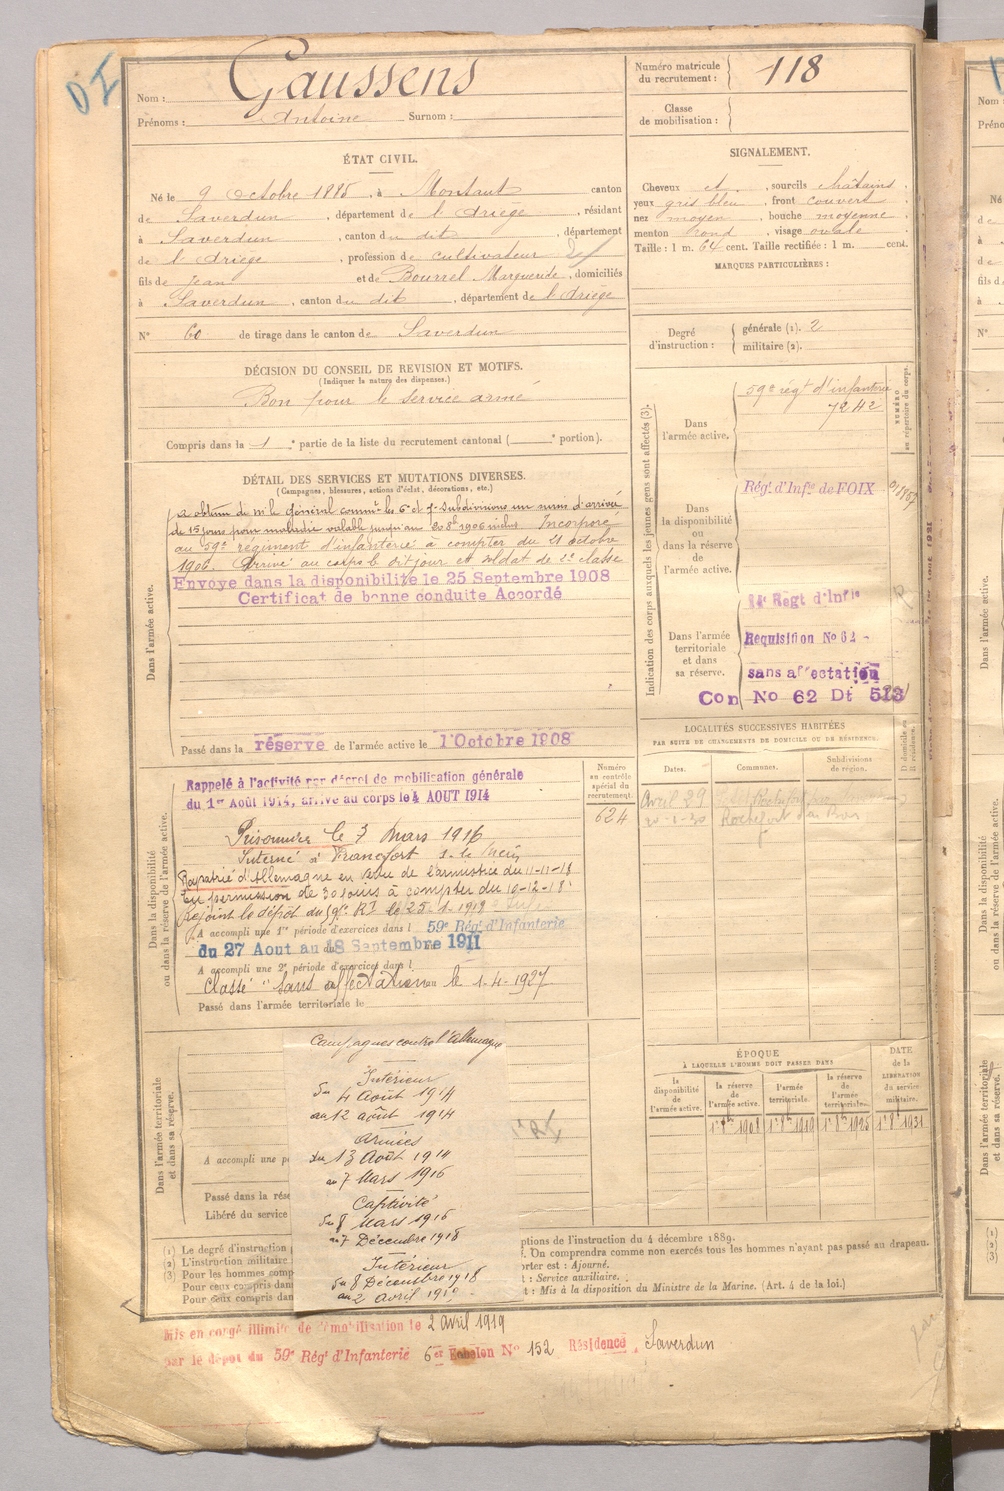 Nom : Gaussens
Prénoms : Antoine Surnom :
ÉTAT CIVIL.
Né le 9 Octobre 1885, à Montaut canton
de Saverdun, département de l'Ariège, résidant
à Saverdun, canton du dit, département
de l'Ariège, profession de cultivateur
fils de Jean et de Bourrel Marguerite, domiciliés
à Saverdun, canton du dit, département de l'Ariège
N° 60 de tirage dans le canton de Saverdun
DÉCISION DU CONSEIL DE REVISION ET MOTIFS.
(Indiquer la nature des dispenses.)
Bon pour le service armé
Compris dans la 1 e partie de la liste du recrutement cantonal ( e portion).
DÉTAIL DES SERVICES ET MUTATIONS DIVERSES.
(Campagnes, blessures, actions d'éclat, décorations, etc.)
Dans l'armée active.
a obtenu de M. le Général comm. les 6e et 7e Subdivisions un sursis d'arrivée
de 15 jours pour maladie valable jusqu'au 20 8bre 1906 inclus. Incorporé
au 59e régiment d'infanterie à compter du 21 octobre
1906. Arrivé au corps le dit jour et soldat de 2e classe
Envoyé dans la disponibilité le 25 Septembre 1908
Certificat de bonne conduite Accordé
Passé dans la réserve de l'armée active le 1er Octobre 1908
Dans la disponibilité
ou dans la réserve de l'armée active.
Rappelé à l'activité par décret de mobilisation générale
du 1er Août 1914, arrivé au corps le 4 AOUT 1914
Prisonnier le 7 mars 1916
Interné à Francfort s. le Mein
Rapatrié d'Allemagne en vertu de l'armistice du 11-11-18
En permission de 30 jours à compter du 10-12-18
Rejoint le dépôt du 59e RI le 25.1.1919
A accompli une 1re période d'exercices dans l 59e Régt d'Infanterie
du 27 Aout au 18 Septembre 1911
A accompli une 2e période d'exercices dans l
Classé "sans affectation" le 1.4.1927
Passé dans l'armée territoriale le
Numéro
au contrôle
spécial du
recrutement.
624
Dans l'armée territoriale
et dans sa réserve.
Campagnes contre l'Allemagne
Intérieur
Du 4 Août 1914
au 12 août 1914
Armées
du 13 Août 1914
au 7 Mars 1916
Captivité
Du 8 Mars 1916
au 7 Décembre 1918
Intérieur
Du 8 Décembre 1918
au 2 Avril 1919
A accompli une p
Passé dans la rése
Libéré du service
Numéro matricule
du recrutement : 118
Classe
de mobilisation :
SIGNALEMENT.
Cheveux et, sourcils châtains
yeux gris bleu, front couvert
nez moyen, bouche moyenne
menton rond, visage ovale
Taille : 1 m. 64 cent. Taille rectifiée : 1 m. cent.
MARQUES PARTICULIÈRES :
Degré
d'instruction :
générale (1). 2
militaire (2).
Indication des corps auxquels les jeunes gens sont affectés (3).
NUMÉRO
au répertoire du corps.
Dans
l'armée active.
59e régt d'infanterie
7242
Dans
la disponibilité
ou
dans la réserve
de
l'armée active.
Régt d'Infie de FOIX
Dans l'armée
territoriale
et dans
sa réserve.
Régt d'Infie
Requisition No 62
sans affectation
Con No 62 Dt 513
LOCALITÉS SUCCESSIVES HABITÉES
PAR SUITE DE CHANGEMENTS DE DOMICILE OU DE RÉSIDENCE.
Dates. Communes. Subdivisions
de région.
D domicile ou
R résidence.
Avril 29
Rochefort
ÉPOQUE
À LAQUELLE L'HOMME DOIT PASSER DANS
la
disponibilité
de
l'armée active.
la réserve
de
l'armée active.
l'armée
territoriale.
la réserve
de
l'armée
territoriale.
DATE
de la
LIBÉRATION
du service
militaire.
(1) Le degré d'instruction
(2) L'instruction militaire
(3) Pour les hommes comp
Pour ceux compris dan
Pour ceux compris dan
ptions de l'instruction du 4 décembre 1889.
. On comprendra comme non exercés tous les hommes n'ayant pas passé au drapeau.
orter est : Ajourné.
t : Service auxiliaire.
t : Mis à la disposition du Ministre de la Marine. (Art. 4 de la loi.)
Mis en congé illimité de démobilisation le 2 avril 1919
par le dépot du 59e Régt d'Infanterie 6e Echelon No 152 Résidence Saverdun